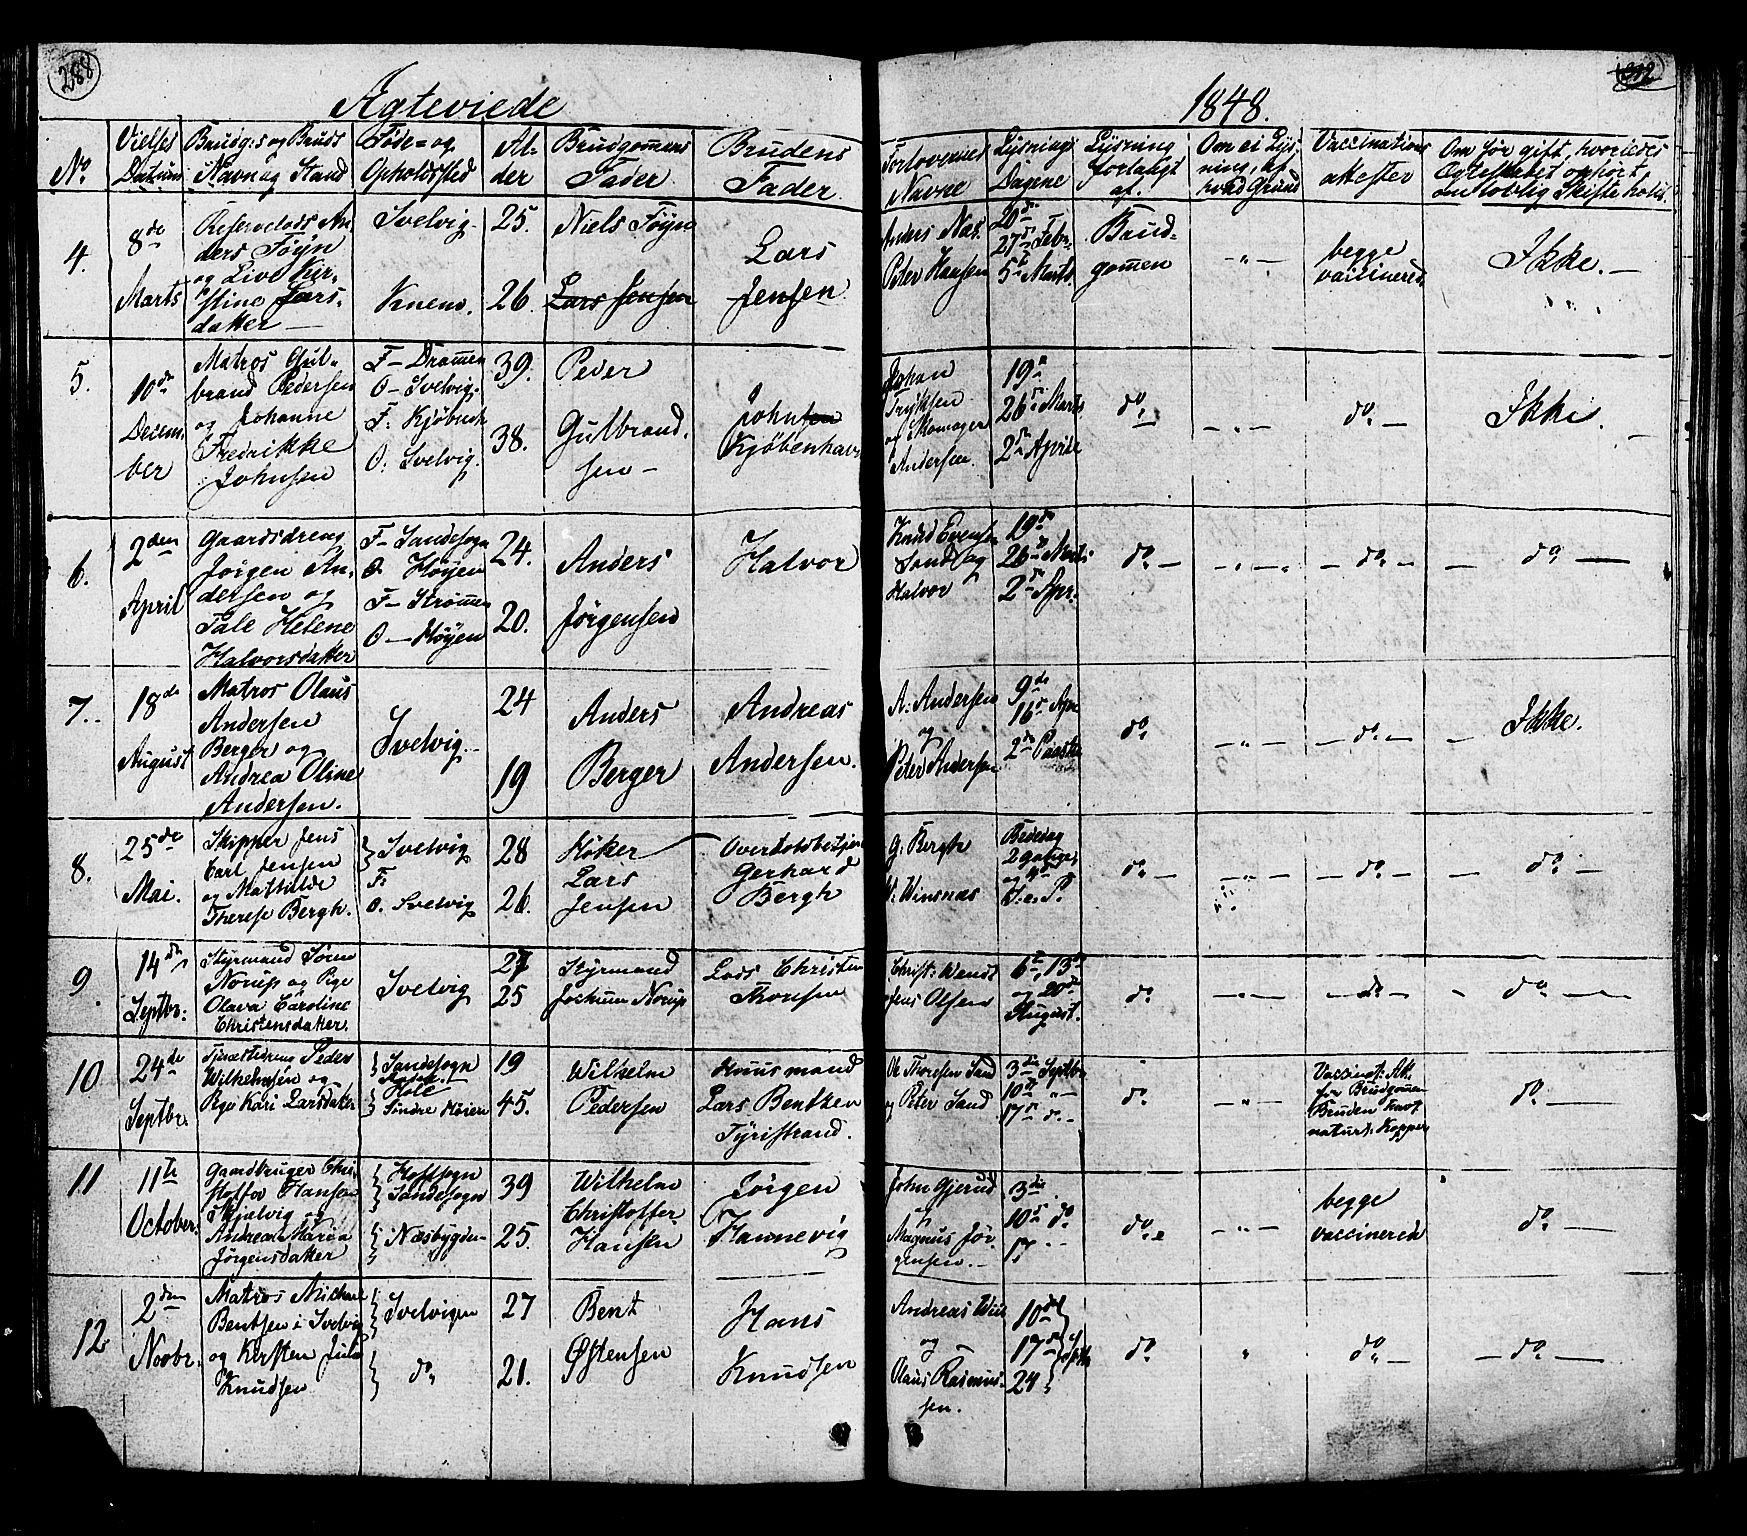 288
Ægteviede
1848.
No.
Vielses Datum
Brudg:s og Bruds Navn og Stand
Føde- og Opholdssted
Alder
Brudgommens Fader
Brudens Fader
Forlovernes Navne
Lysnings Dagene
Lysning forlangt af.
Om ei Lysning, af hvad Grund
Vaccinations attester
Om før gift, hvorledes Egteskabet ophørt
en lovlig Skifte holdt.
4.
8de Marts
Reservelods Anders Føÿn
og Live Kirstine Larsdatter
Svelvig
Knem.
25.
26.
Niels Føÿn
Lars Jensen
Lars Jensen
Anders Næs.
Peter Hansen
20de
27de Febr.
5te Marts
Brudgommen
begge vaccinered
Ikke.
5.
10de December
Matros Gulbrand Pedersen
og Johanne Fredrikke Johnsen
F- Drammen
O- Svelvig.
F: Kjøbenh
O: Svelvig.
39.
38.
Peder Gulbrandsen
Johnsen
Kjøbenhavn
Johan
Andersen
19de
26de Marts
2den Aprile
do
do
Ikke.
6.
2den April
Gaardsdreng
Jørgen Andersen og
Tale Helene
Halvorsdatter
F- Sandesogn
O- Høÿen
F- Strømm
O- Høÿen
24.
20.
Anders Jørgensen
Halvor
Knud Evensen
Sand og
Halvor
19de
26de Marts
2den Apr.
do
do
do
7.
18de August
Matros Olaus
Andersen
Berger og
Andrea Oline
Andersen.
Svelvig.
24
19
Anders Berger
Andreas Andersen.
A. Andersen
og
Peter Andersen
9de
16de Apr
2den Paaske
do
do
Ikke.
8.
25de Mai.
Skipper Jens
Carl Jensen
og Mathilde
Therese Bergh.
Svelvig
F:
O. Svelvig
28
26.
Høker
Lars
Jensen
Gerhard
Bergh
G: Bergh
W: Winsnæs
Bededag
do
do
do
9.
14de Septbr:
Styrmand Søren
Norup og Pige
Olava Caroline
Christensdatter.
Svelvig
27
25
Styrmand
Jochum Norup
Lods Christen
Thoresen
Christ: Wendt
Jens Olsen
6te, 13de
og 20de
August.
do
do
do
10
24de Septbr.
Tjenestedreng Peder
Wilhelmsen og
Pige Kari Larsdatter
Sandesogn
Hole
Søndre Høien
19
45.
Wilhelm
Pedersen
Huusmand
Lars Bentzen
Tyristrand.
Ole Thoresen Sand
og Peter Sand
3die Septbr
10de
17de do
do
Vaccinat: Att.
for Brudgommen
Bruden havt
naturl. Kopper
do
11
11te October.
Gaardbruger Christoffer Hansen
Skjelvig og
Andrea Maria
Jørgensdatter
Hoffsogn
Sandesogn
Næsbygden
39
25.
Wilhelm
Christoffer
Hansen
Jørgen
Hannevig
John Gjerud
og
Magnus Jørgensen.
3die
10de do
17
do
begge vaccinered
do
12
2den Novbr.
Matros Michael
Bentsen i Svelvig
og Kirsten Julie
Knudsen
Svelvigen
do
27
21.
Bent
Østensen
Hans
Knudsen
Andreas Wiil
og
Olaus Rasmussen.
10de
17de
24
Septbr
do
do
do